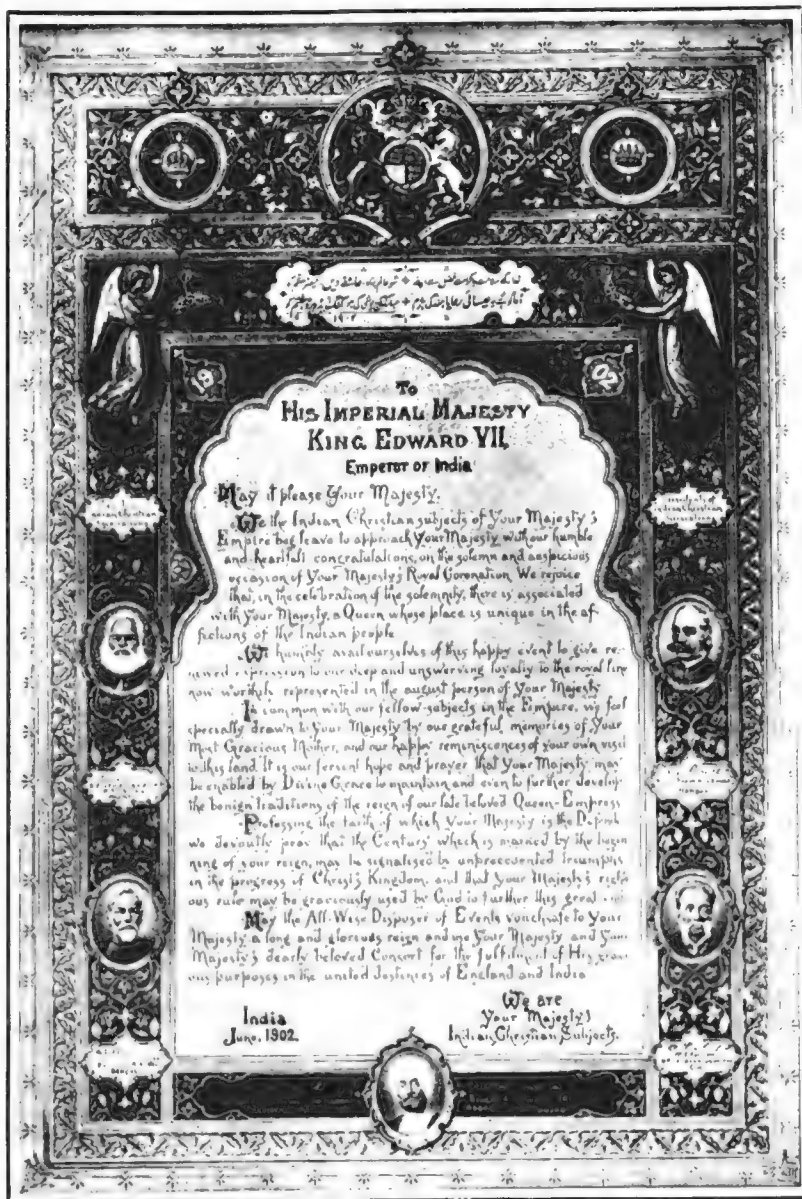 19
02
To
His Imperial Majesty
King Edward VII,
Emperor of India
May it please Your Majesty,
We the Indian Christian subjects of Your Majesty's
Empire beg leave to approach Your Majesty with our humble
and heartfelt congratulations, on the solemn and auspicious
occasion of Your Majesty's Royal Coronation. We rejoice
that, in the celebration of the solemnity, there is associated
with Your Majesty, a Queen whose place is unique in the af-
fections of the Indian people
We humbly avail ourselves of this happy event to give re-
newed expression to our deep and unswerving loyalty to the royal line
now worthily represented in the august person of Your Majesty
In common with our fellow-subjects in the Empire, we feel
specially drawn to Your Majesty by our grateful memories of Your
Most Gracious Mother, and our happy reminiscences of your own visit
to this land. It is our fervent hope and prayer that Your Majesty may
be enabled by Divine Grace to maintain and even to further develop
the benign traditions of the reign of our late beloved Queen-Empress
Professing the faith of which Your Majesty is the
we devoutly pray that the Century which is marked by the begin
ning of your reign, may be signalised by unprecedented triumphs
in the progress of Christ's Kingdom, and that Your Majesty's right
ous rule may be graciously used by God to further this great
May the All-Wise Disposer of Events vouchsafe to Your
Majesty a long and glorious reign and Your Majesty and Your
Majesty's dearly beloved Consort for the fulfilment of His
ous purposes in the united destinies of England and India
We are
India
Your Majesty's
June, 1902.
Indian Christian Subjects.